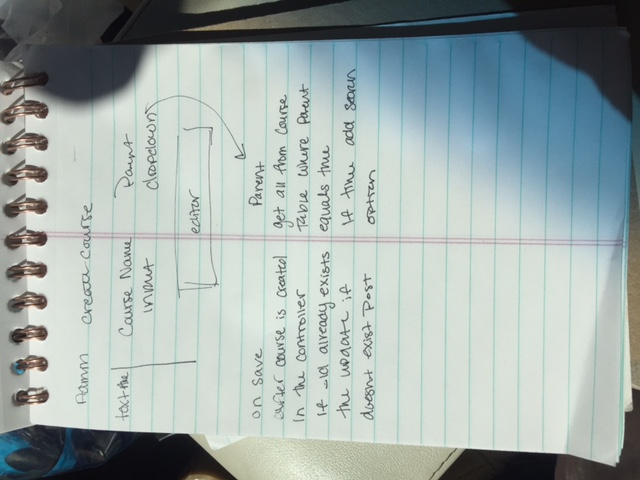 Admin create course
text Angular Course Name Parent
input dropdown
editor
on save
after course is created
in the controller
if _id already exists
the update if
doesnt exist Post
Parent
get all from Course
Table where Parent
equals true
If time add search
option